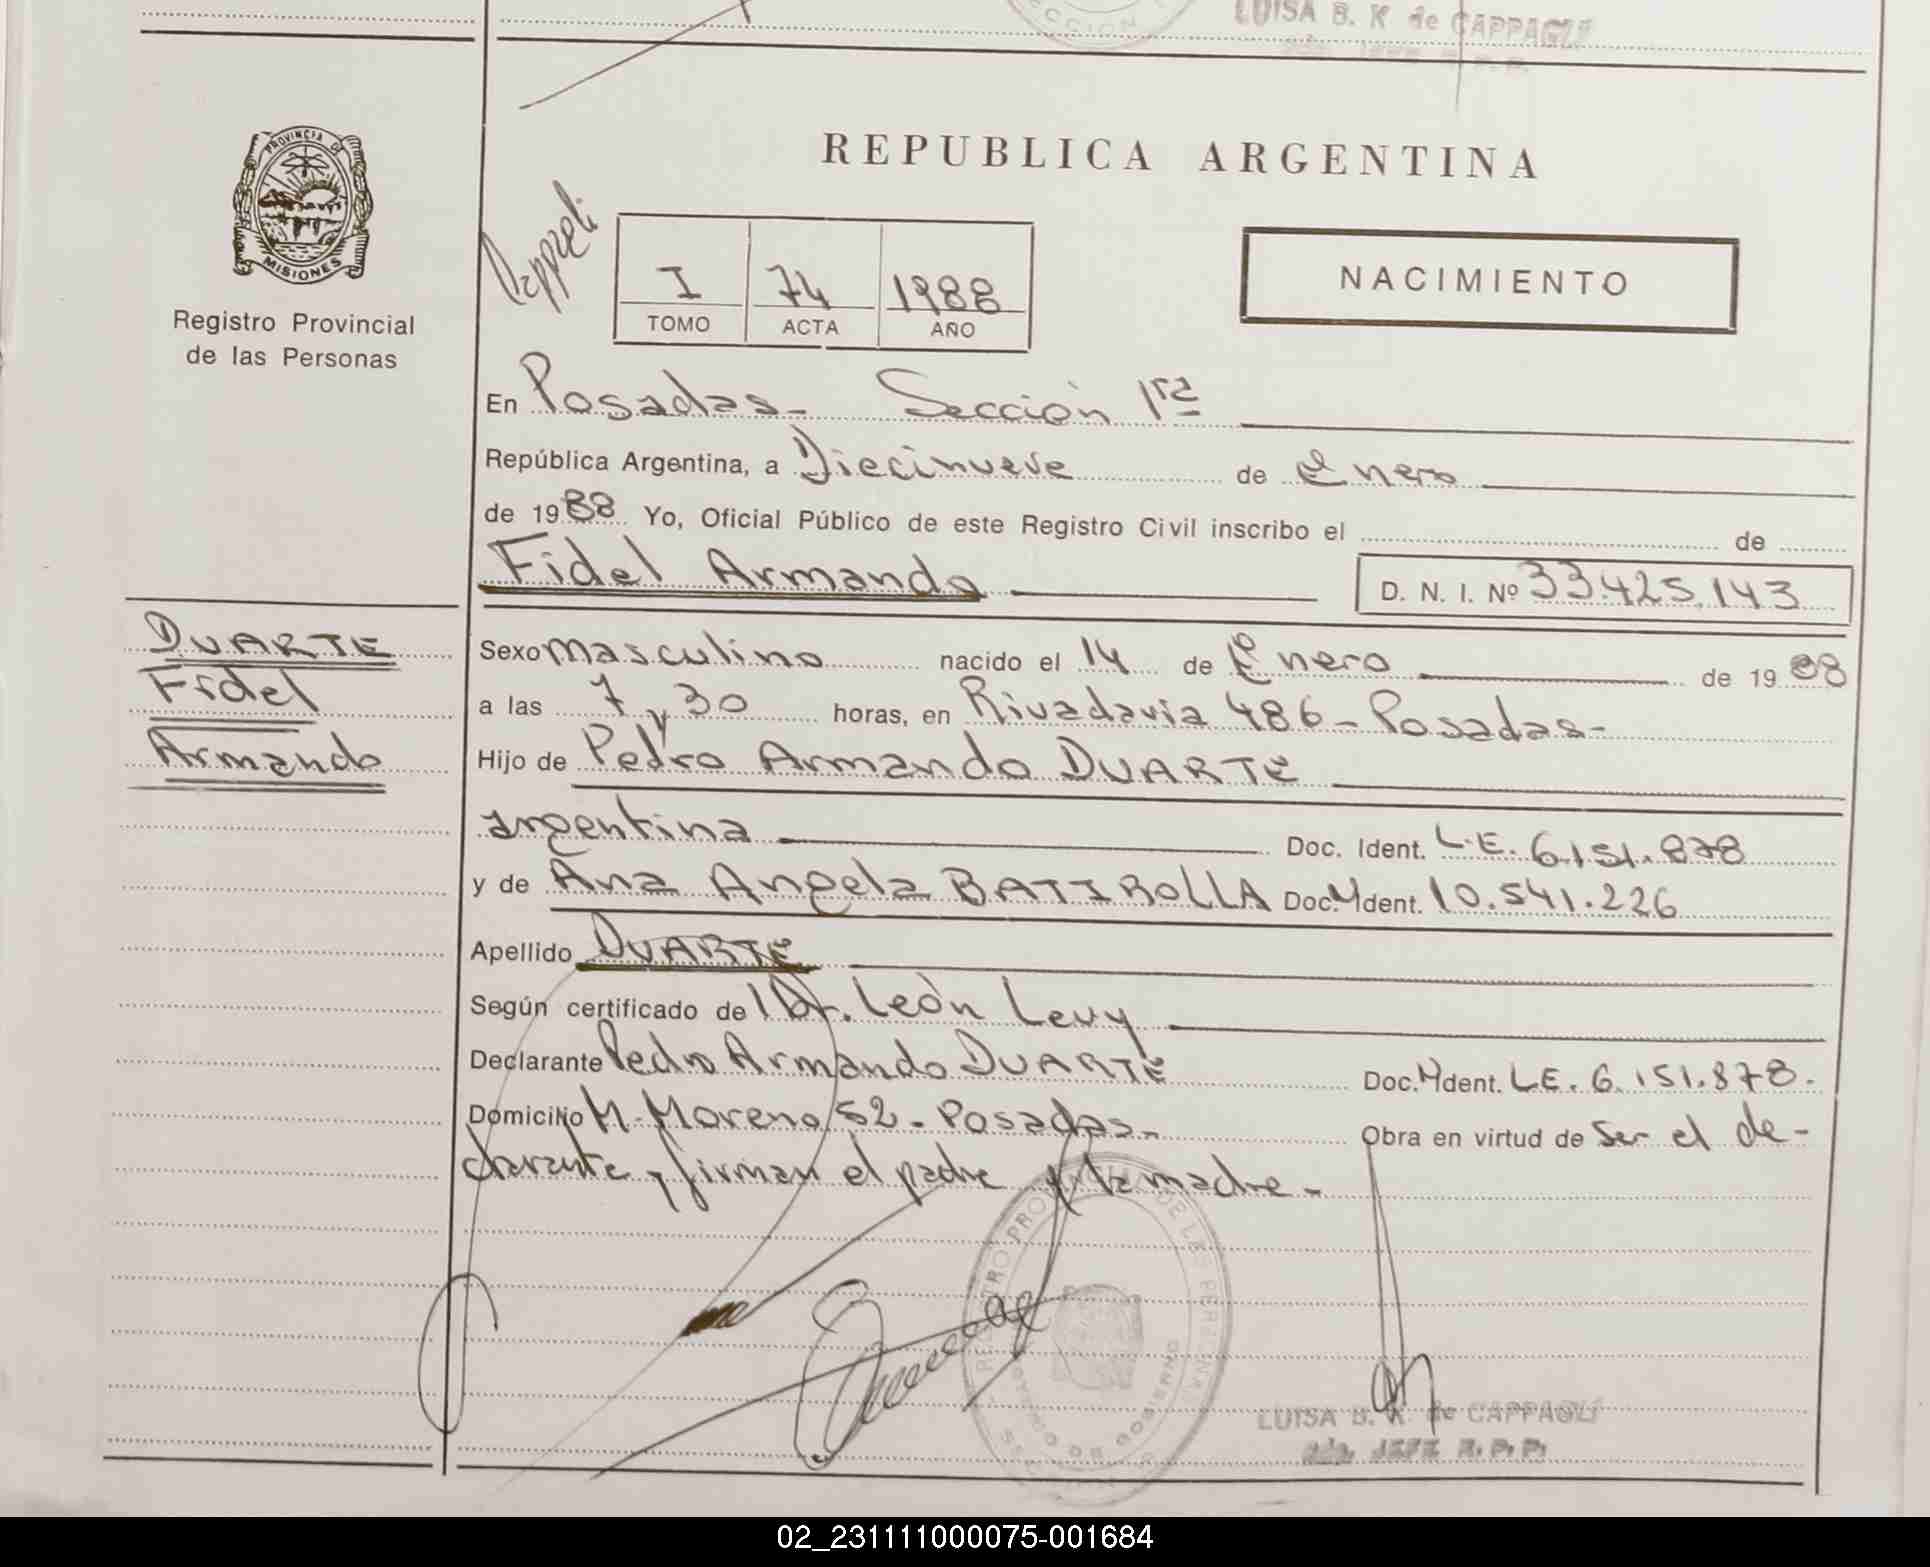 LUISA B. K de CAPPAGLI
PROVINCIA DE
MISIONES
Registro Provincial
de las Personas
REPUBLICA ARGENTINA
I 74 1988
TOMO ACTA AÑO
NACIMIENTO
En Posadas- Sección 1ra
República Argentina, a Diecinueve de Enero
de 1988 Yo, Oficial Público de este Registro Civil inscribo el de
Fidel Armando D. N. I. Nº 33.425.143
DUARTE
Fidel
Armando
Sexo masculino nacido el 14 de Enero de 1988
a las 7 y 30 horas, en Rivadavia 486- Posadas-
Hijo de Pedro Armando DUARTE
argentina Doc. Ident. L.E. 6.151.878
y de Ana Angela BATIROLLA Doc. Ident. 10.541.226
Apellido DUARTE
Según certificado de l Dr. León Levy
Declarante Pedro Armando DUARTE Doc. Ident. LE. 6.151.878.
Domicilio M. Moreno 52- Posadas- Obra en virtud de ser el de-
clarante y firman el padre y la madre-
LUISA B. K de CAPPAGLI
JEFE R. P. P.
02_231111000075-001684